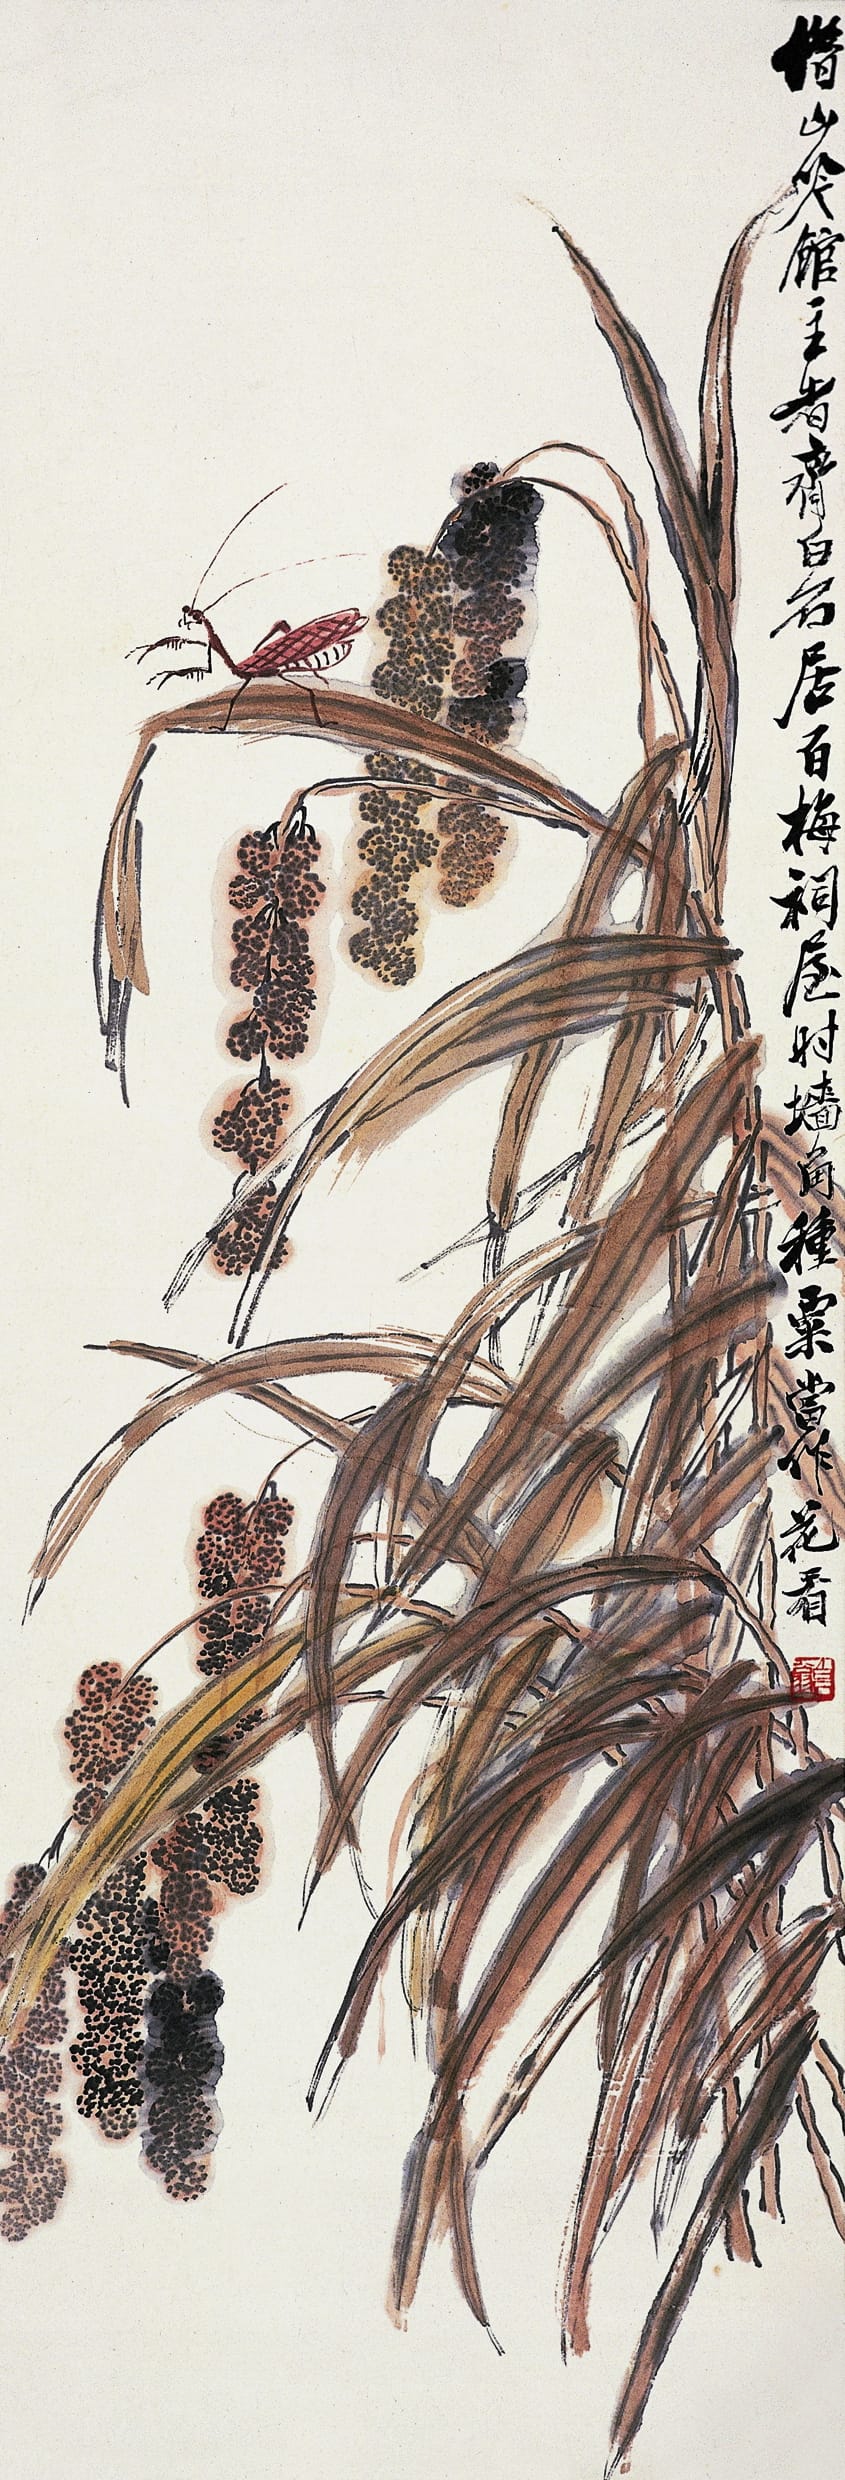 借山吟館主者齊白石居百梅祠屋时墻角種粟當作花看